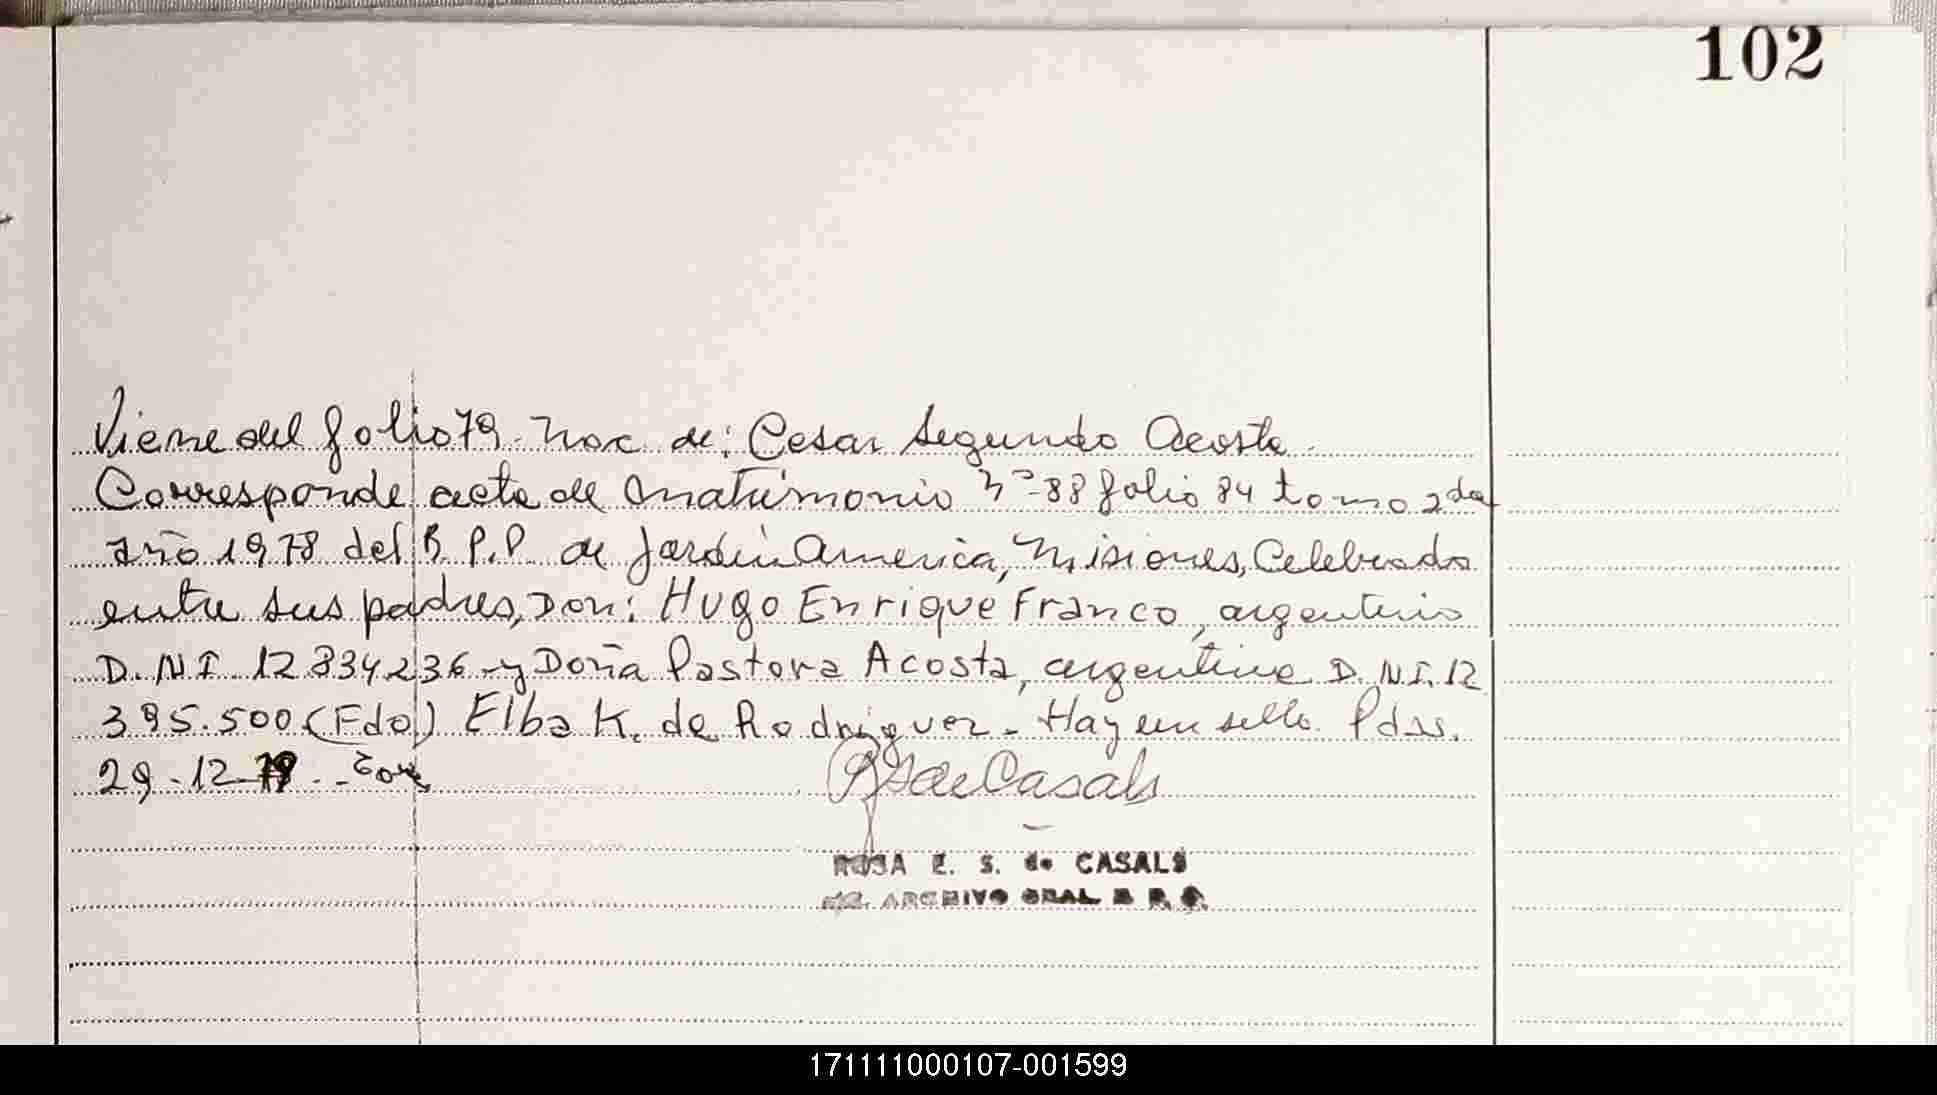 102
Viene del folio 79. Nac. de: Cesar Segundo Acosta.
Corresponde acta de Matrimonio Nº 88 folio 84 tomo 2da
año 1978 del R.P.P. de Jardín America, Misiones, Celebrado
entre sus padres, Don: Hugo Enrique Franco, argentino
D.N.I. 12 834236 y Doña Pastora Acosta, argentina D.N.I. 12
395.500 (Fdo) Elba K. de Rodriguez - Hay un sello. Pdas.
29-12-79
de Casals
ROSA E. S. de CASALS
ARCHIVO GRAL R P P.
171111000107-001599